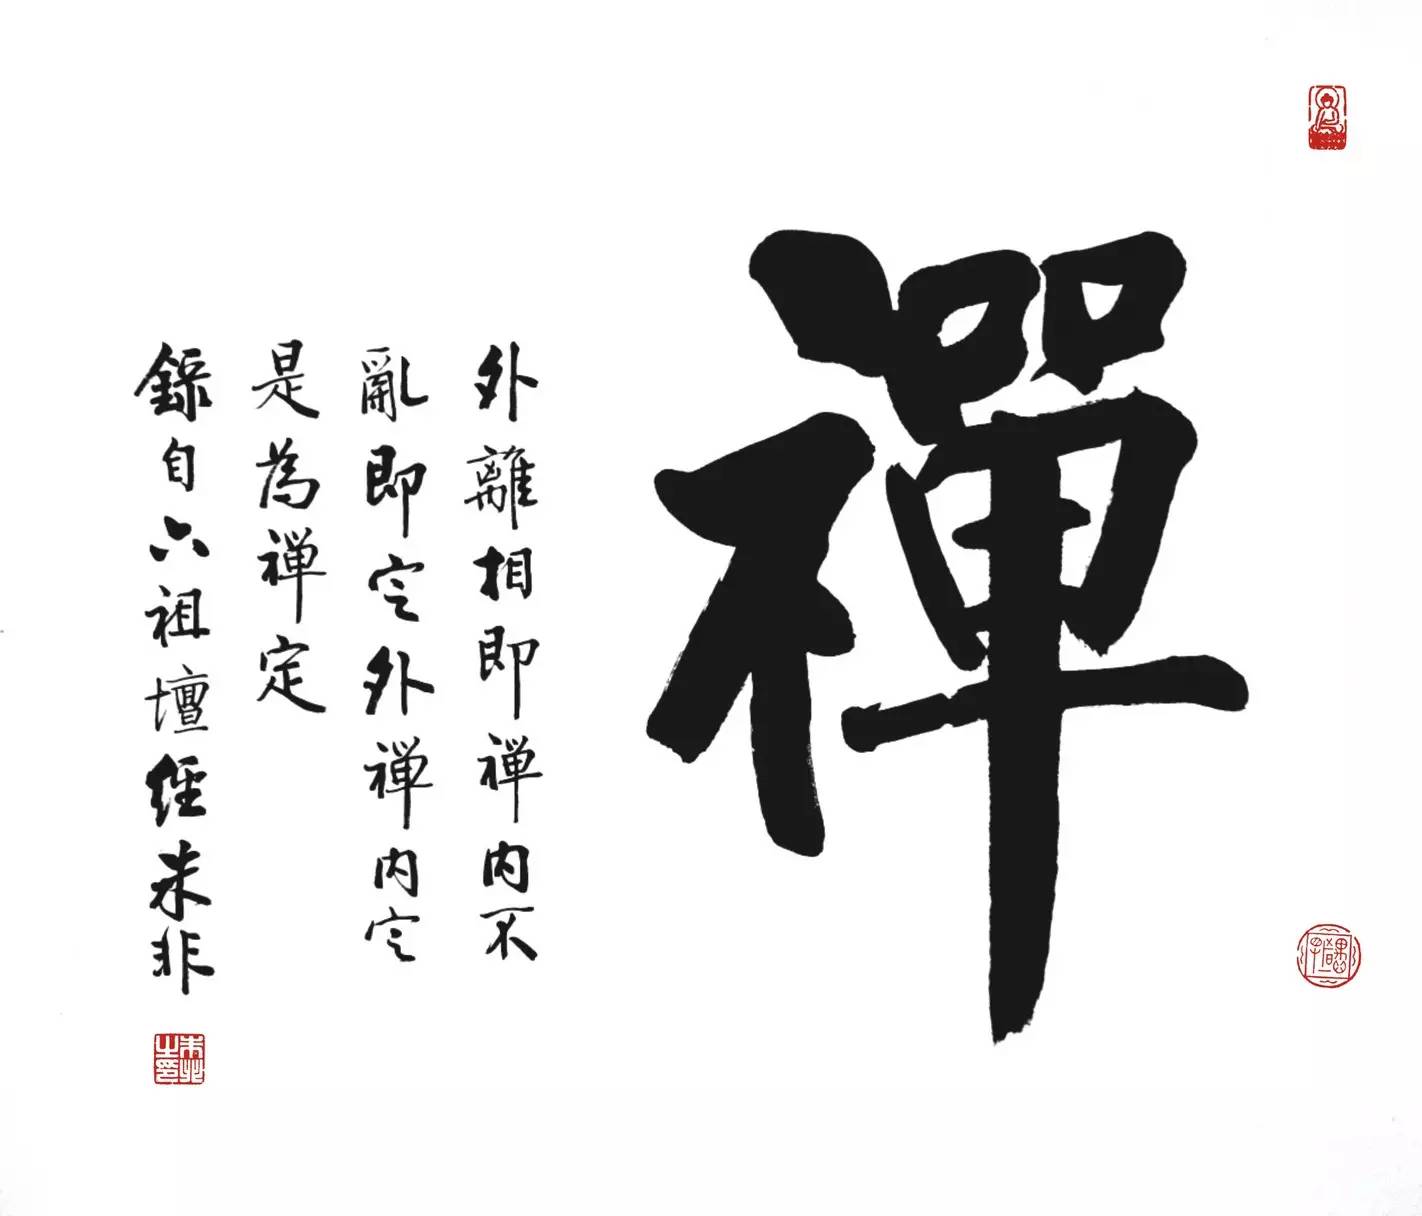 禪
外離相即禅内不
亂即定外禅内定
是為禅定
錄自六祖壇經朱非